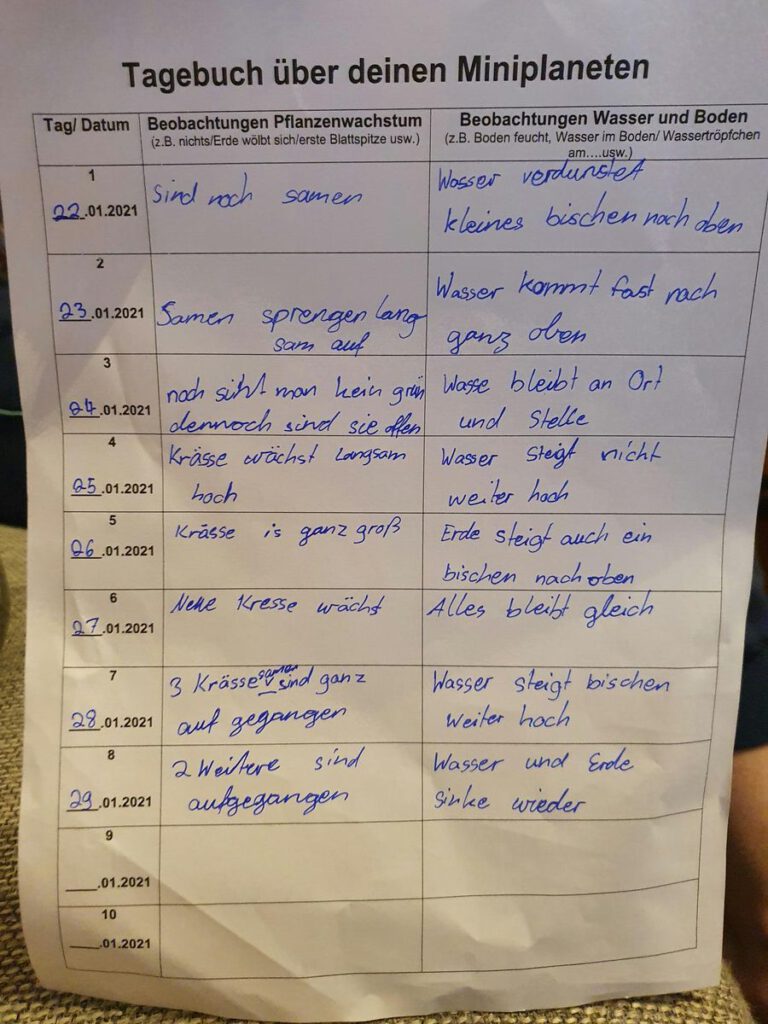 Tagebuch über deinen Miniplaneten
Tag/ Datum
Beobachtungen Pflanzenwachstum
(z.B. nichts/Erde wölbt sich/erste Blattspitze usw.)
Beobachtungen Wasser und Boden
(z.B. Boden feucht, Wasser im Boden/ Wassertröpfchen
am....usw.)
1
22.01.2021
Sind noch samen
Wasser verdunstet
kleines bischen nach oben
2
23.01.2021
Samen sprengen lang
sam auf
Wasser kommt fast nach
ganz oben
3
24.01.2021
noch siht man kein grün
dennoch sind sie offen
Wasse bleibt an Ort
und Stelle
4
25.01.2021
Krässe wächst langsam
hoch
Wasser steigt nicht
weiter hoch
5
26.01.2021
Krässe is ganz groß
Erde steigt auch ein
bischen nach oben
6
27.01.2021
Neue Kresse wächst
Alles bleibt gleich
7
28.01.2021
3 Krässe samen sind ganz
auf gegangen
Wasser steigt bischen
weiter hoch
8
29.01.2021
2 Weitere sind
aufgegangen
Wasser und Erde
sinke wieder
9
____.01.2021
10
____.01.2021